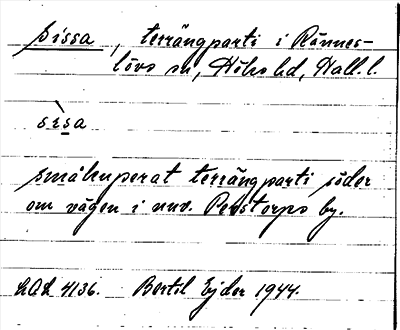 Sissa, terrängparti i Rännes-
lövs sn, Höks hd, Hall. l.
sìsa
småkuperat terrängparti söder
om vägen i nuv. Perstorps by.
LAL 4136. Bertil Ejder 1944.